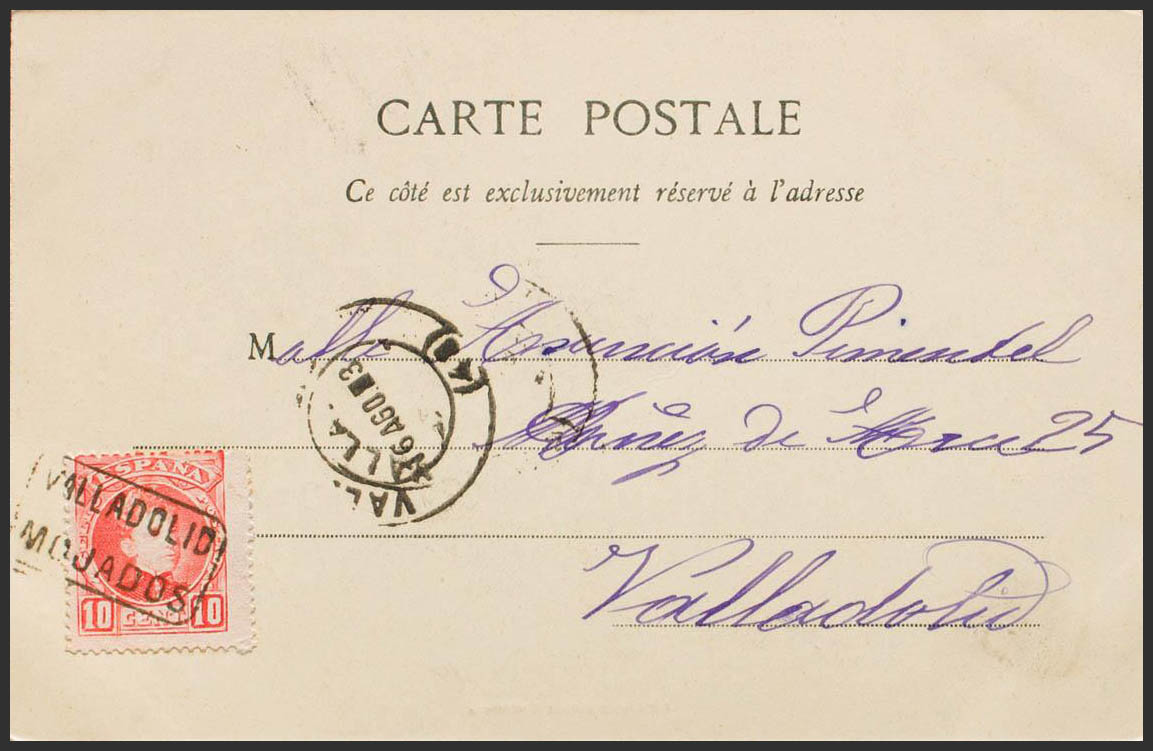 CARTE POSTALE
Ce côté est exclusivement réservé à l'adresse
Malle Asunción Pimentel
Núñez de Arce 25
Valladolid
VALLA
6 AGO. 03
ESPAÑA
VALLADOLID
MOJADOS
10 CENTS 10